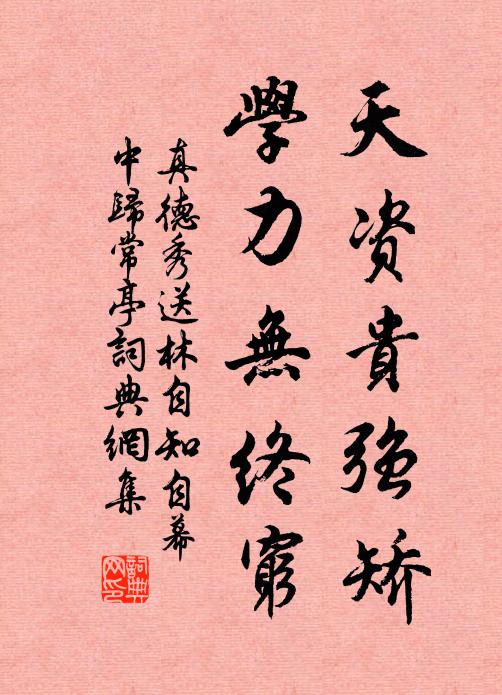 天资貴強矯
學力無終窮
真德秀送林自知自幕
中歸常亭詞典網集
詞典网印